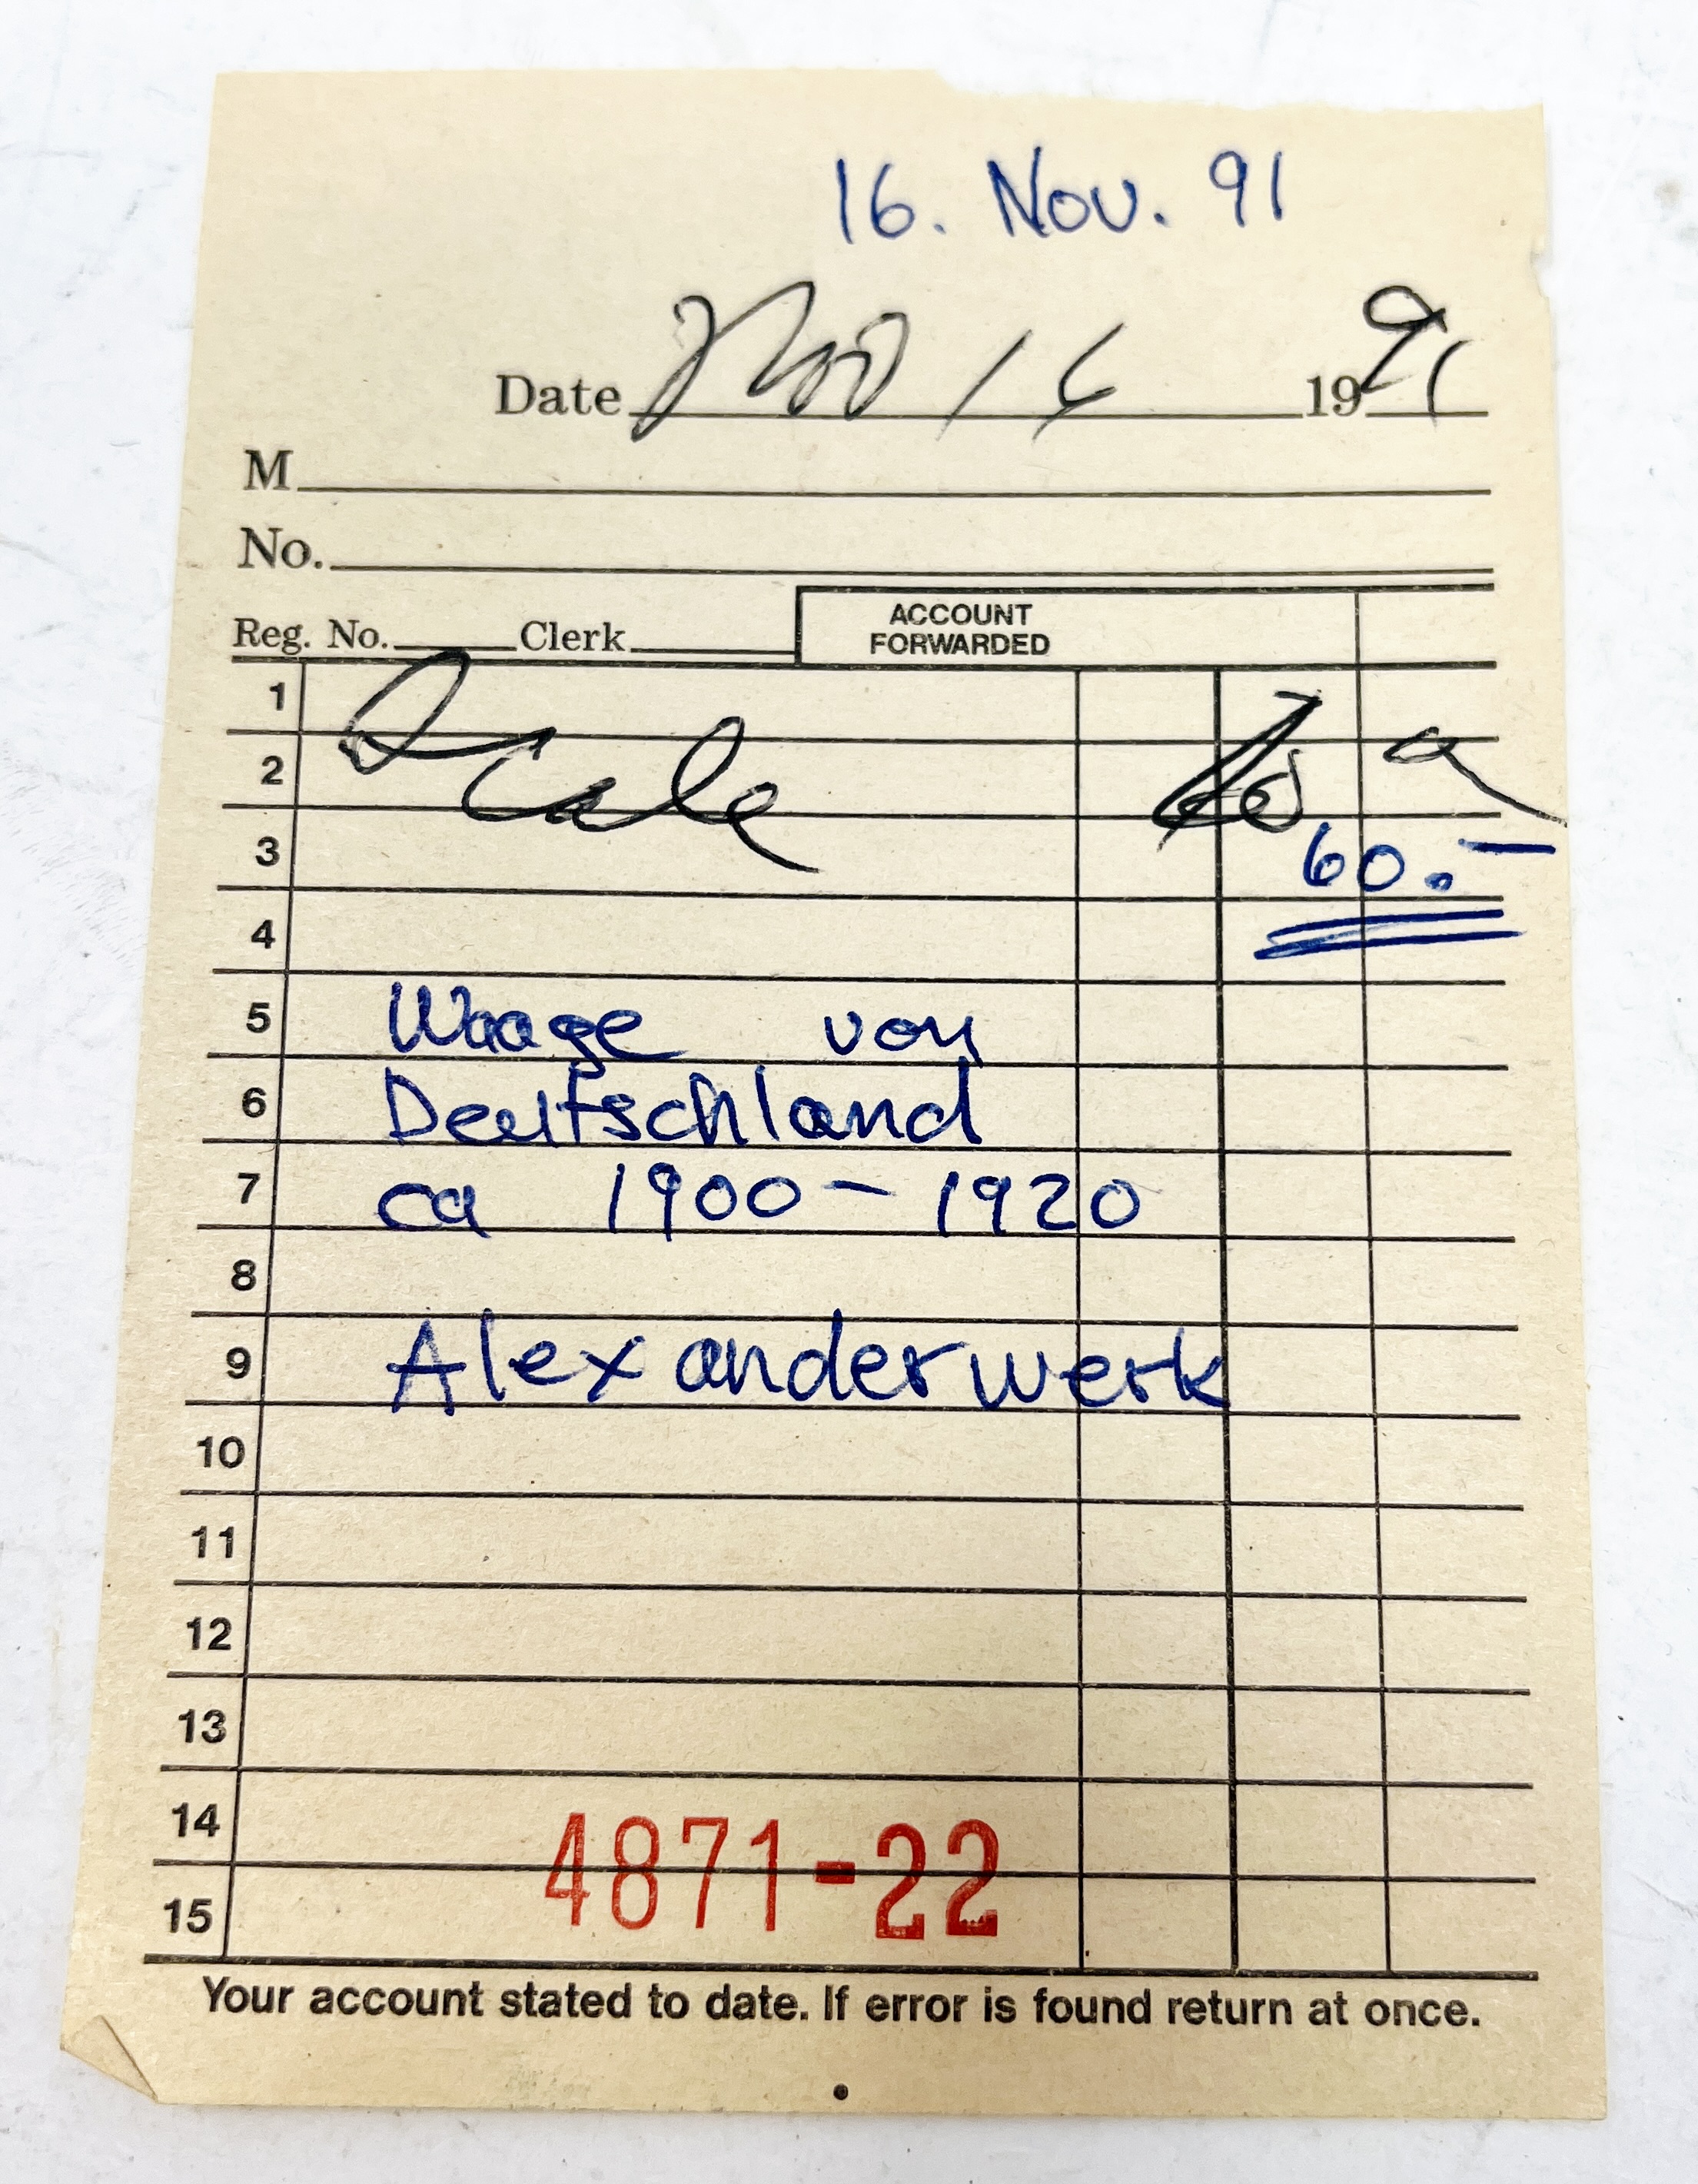 16. Nov. 91
Date Nov 16 1991
M
No.
Reg. No. Clerk ACCOUNT FORWARDED
1
2 Scale
3 60.-
4
5 Waage von
6 Deutschland
7 ca 1900-1920
8
9 Alexanderwerk
10
11
12
13
14
4871-22
15
Your account stated to date. If error is found return at once.